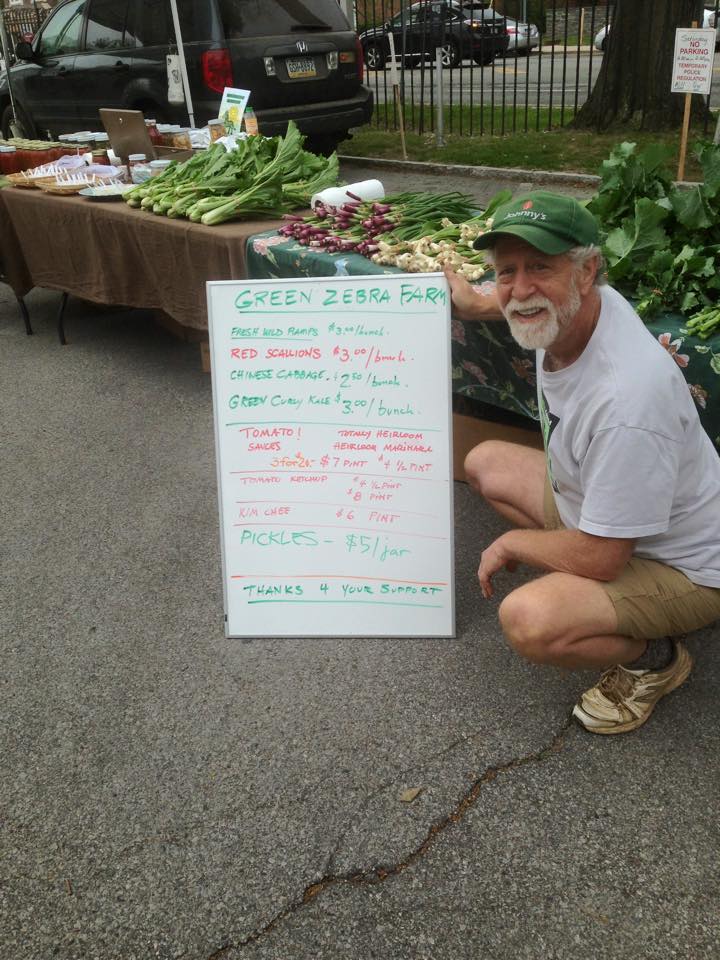 Johnny's
Saturday
NO
PARKING
TEMPORARY
POLICE
REGULATION
GREEN ZEBRA FARM
FRESH WILD RAMPS $3.00/bunch.
RED SCALLIONS $3.00/bunch.
CHINESE CABBAGE - $2.50/bunch.
GREEN CURLY KALE $3.00/bunch.
TOMATO! TOTALLY HEIRLOOM
SAUCES HEIRLOOM MARINARA
3 for 20- $7 PINT $4 1/2 PINT
TOMATO KETCHUP $4 1/2 PINT
$8 PINT
KIM CHEE $6 PINT
PICKLES - $5/jar
THANKS 4 YOUR SUPPORT